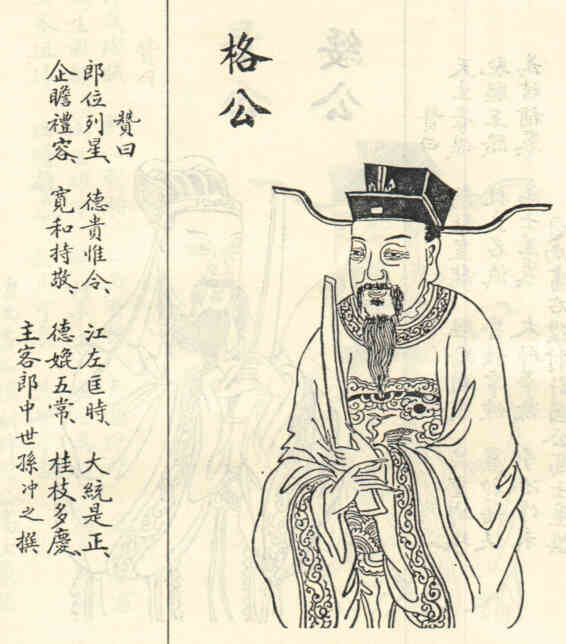 格公
贊曰
郎位列星、德貴惟令、江左匡時、大統是正、
企瞻禮容、寬和持敬、德媲五常、桂枝多慶、
主客郎中世孫冲之撰